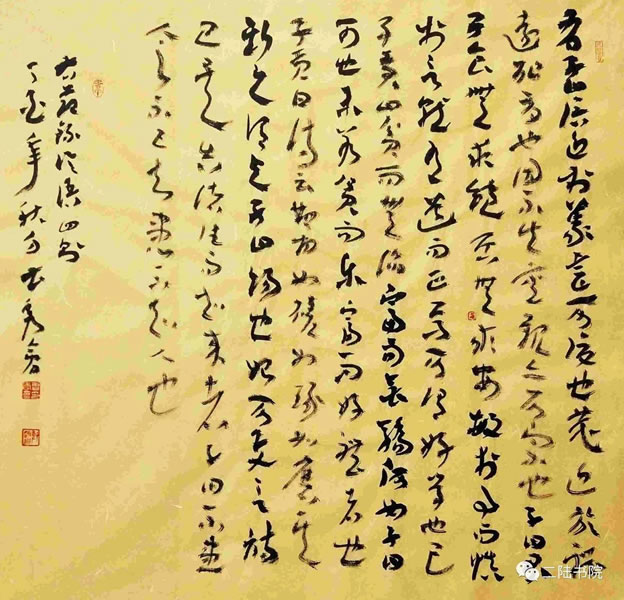 有子曰信近於義言可復也恭近於禮
遠恥辱也因不失其親亦可宗也子曰君
子食無求飽居無求安敏於事而慎
於言就有道而正焉可謂好學也已
子貢曰貧而無諂富而無驕何如子曰
可也未若貧而樂富而好禮者也
子貢曰詩云如切如磋如琢如磨其
斯之謂與子曰賜也始可與言詩
已矣告諸往而知來者子曰不患
人之不己知患不知人也
右節錄論語四則
丁酉年秋月书
二陆书院